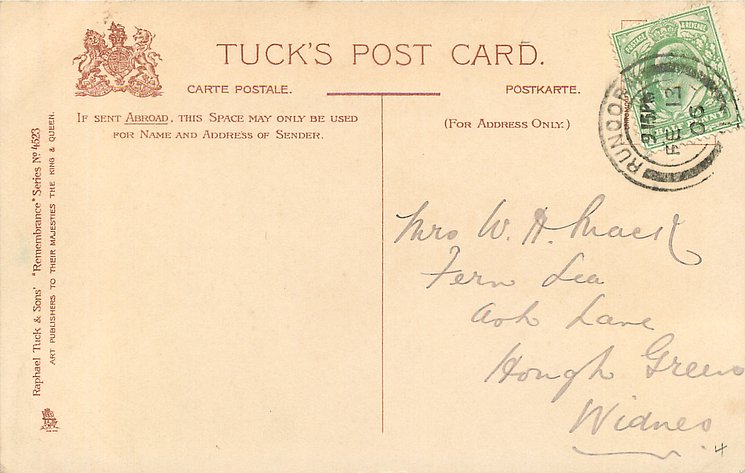 TUCK'S POST CARD.
CARTE POSTALE.
POSTKARTE.
IF SENT ABROAD, THIS SPACE MAY ONLY BE USED
FOR NAME AND ADDRESS OF SENDER.
(FOR ADDRESS ONLY.)
POSTAGE & REVENUE
RUNCORN
9 15 PM
FE 13
06
Mrs W. H. Mack
Fern Lea
Ash Lane
Hough Green
Widnes
4
Raphael Tuck & Sons' "Remembrance" Series No 4623
ART PUBLISHERS TO THEIR MAJESTIES THE KING & QUEEN.